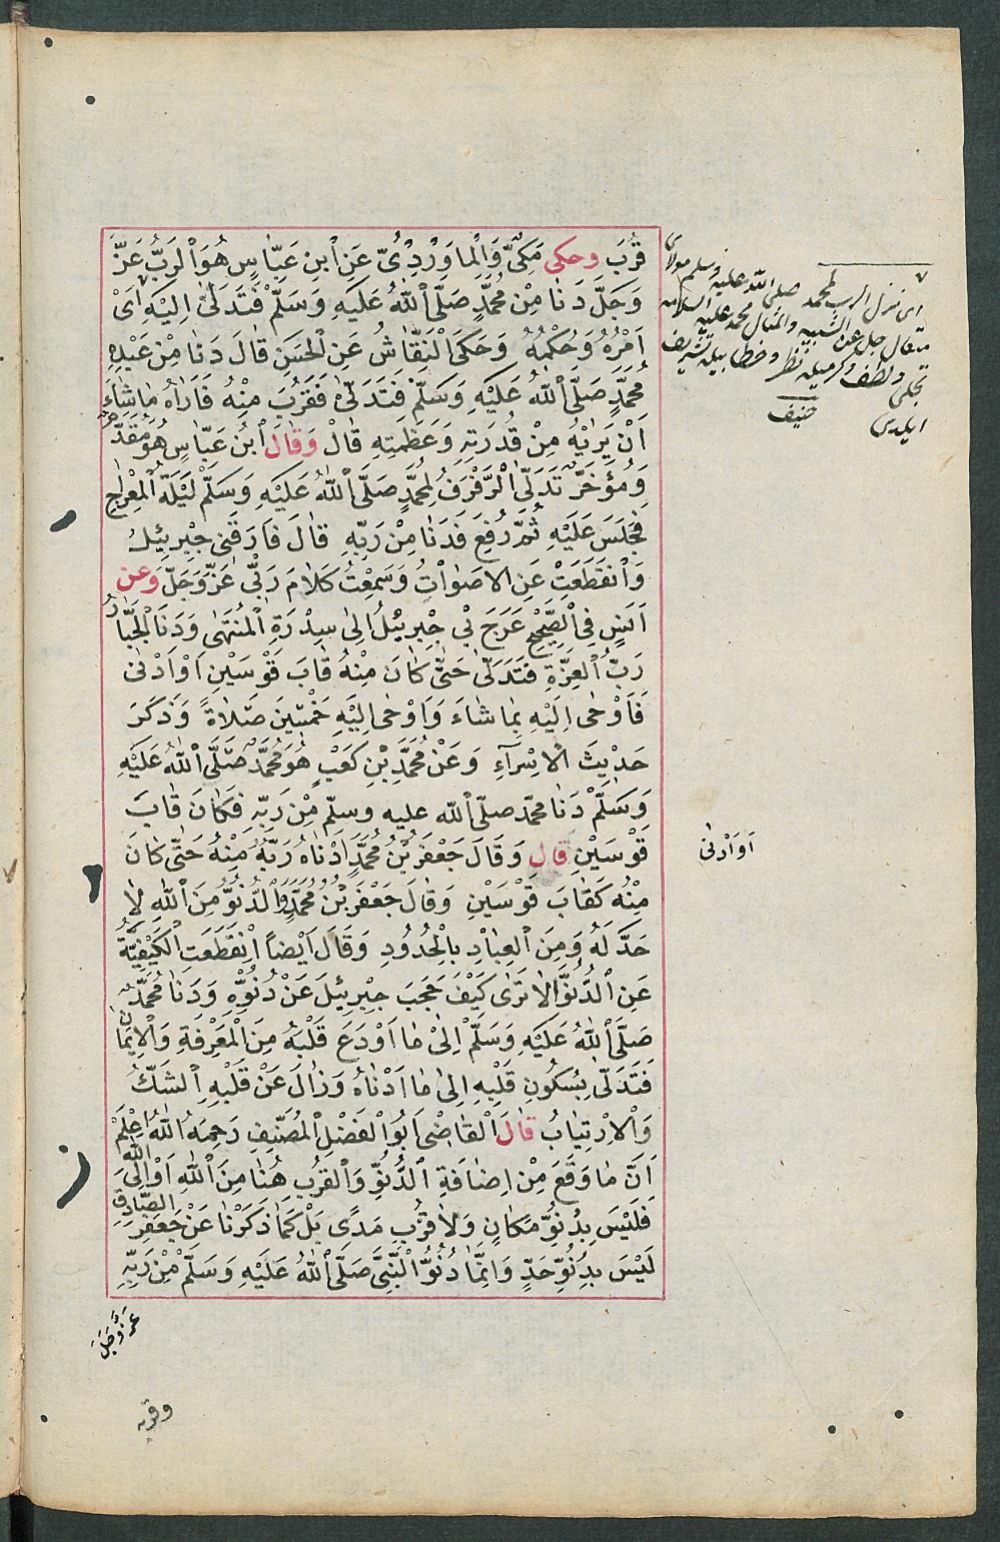 قَرُبَ وحكى مَكِىٌّ وَالْمَاوَرْدِىُّ عَنِ ابْنِ عَبَّاسٍ هُوَ الرَبُّ عَزَّ
وَجَلَّ دَنَا مِنْ مُحَمَّدٍ صَلَّى اللهُ عَلَيْهِ وَسَلَّمْ فَتَدَلّىٰ اِلَيْهِ اَىْ
اَمْرُهُ وَحُكْمُهُ وَحَكَى النَّقَّاشُ عَنِ الْحَسَنِ قَالَ دَنَا مِنْ عَبْدِهِ
مُحَمَّدٍ صَلَّى اللهُ عَلَيْهِ وَسَلَّمْ فَتَدَلّىٰ فَقَرُبَ مِنْهُ فَاَرَاهُ مَاشَاءَ
اَنْ يَرَيْهُ مِنْ قُدْرَتِهِ وَعَظَمَتِهِ قَالْ وَقَالَ ابْنُ عَبَّاسٍ هُوَ مُقَدَّمٌ
وَمُؤَخَّرٌ تَدَلَّى الرَّفْرَفُ لِمُحَمَّدٍ صَلَّى اللهُ عَلَيْهِ وَسَلَّمْ لَيْلَةَ الْمِعْرَاجِ
فَجَلَسَ عَلَيْهِ ثُمَّ رُفِعَ فَدَنَا مِنْ رَبِّهِ قَالَ فَارَقَنِى جِبْرِيئِلُ
وَانْقَطَعَتْ عَنِ الاصَوَاتُ وَسَمِعْتُ كَلَامَ رَبِّى عَزَّ وَجَلَّ وَعن
اَنَسٍ فِى الصَّحِيْحِ عَرَجَ بِى جِبْرِيْئلُ اِلىٰ سِدْرَةِ الْمُنْتَهٰى وَدَنَا الْجَبَّارُ
رَبُّ الْعِزَّةِ فَتَدَلّىٰ حَتّٰى كَانَ مِنْهُ قَابَ قَوْسَيْنِ اَوْ اَدْنٰى
فَاَوْحٰى اِلَيْهِ بِمَا شَاءَ وَاَوْحٰى اِلَيْهِ خَمْسِيْنَ صَلَاةً وَذَكَرَ
حَدِيْثَ الْاِسْرَآءِ وَعَنْ مُحَمَّدِ بْنِ كَعْبٍ هُوَ مُحَمَّدٌ صَلَّى اللهُ عَلَيْهِ
وَسَلَّمْ دَنَا محمّد صلّى الله عليه وسلّم مِنْ رَبِّهِ فَكَانَ قَابَ
قَوْسَيْنِ قال وَقَالَ جَعْفَرُ بْنُ مُحَمَّدٍ اَدْنَاهُ رَبُّهُ مِنْهُ حَتّٰى كَانَ
مِنْهُ كَقَابَ قَوْسَيْنِ وَقَالَ جَعْفَرُ بْنُ مُحَمَّدٍ وَالدُّنُوُّ مِنَ اللهِ لَا
حَدَّ لَهُ وَمِنَ الْعِبَادِ بِالْحُدُودِ وَقَالَ اَيْضاً اِنْقَطَعَتِ الْكَيْفِيَّةُ
عَنِ الدُّنُوِّ اَلَا تَرٰى كَيْفَ حَجَبَ جِبْرِيئِلَ عَنْ دُنُوِّهِ وَدَنَا مُحَمَّدٌ
صَلَّى اللهُ عَلَيْهِ وَسَلَّمْ اِلىٰ مَا اَوْدَعَ قَلْبَهُ مِنَ الْمَعْرِفَةِ وَالْاِيمَانِ
فَتَدَلّٰى بِسُكُونِ قَلْبِهِ اِلىٰ مَا اَدْنَاهُ وَزَالَ عَنْ قَلْبِهِ الشَّكُّ
وَالْاِرْتِيَابُ قَالَ الْقَاضِى اَبُو الْفَضْلِ الْمُصَنِّيفِ رَحِمَهُ اللهُ اِعْلَمْ
اَنَّ مَا وَقَعَ مِنْ اِضَافَةِ الدُّنُوِّ وَالْقُرْبِ هُنَا مِنَ اللهِ اَوْ اِلَى الله
فَلَيْسَ بِدُنُوِّ مَكَانٍ وَلَا قُرْبِ مَدًى بَلْ كَمَا ذَكَرْنَا عَنْ جَعْفَرِ الصَّادِقِ
لَيْسَ بِدُنُوِّ حَدٍّ وَاِنَّمَا دُنُوُّ النَّبِىِّ صَلَّى اللهُ عَلَيْهِ وَسَلَّمْ مِنْ رَبِّهِ
عَزَّ وَجَلَّ
وقربه
اى نزل الرب لمحمد صلى الله عليه وسلم مولاى
متعال جل عن الشبيه والمثال محمد عليه السلامه
تجلى ولطف وكرميله نظر وخطابيله تشريف
ايلدى
حنيف
اَوْ اَدْنٰى